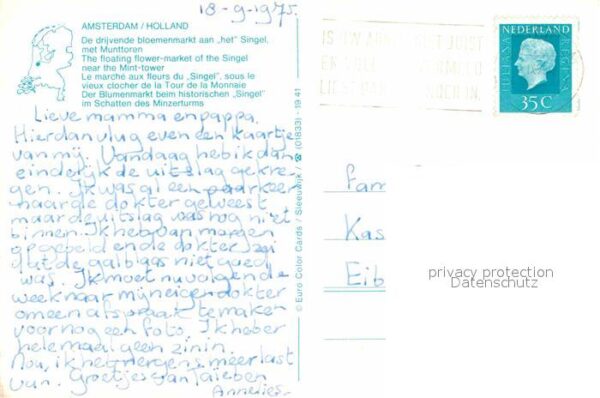 18-9-1975.
AMSTERDAM / HOLLAND
De drijvende bloemenmarkt aan „het" Singel,
met Munttoren
The floating flower-market of the Singel
near the Mint-tower
Le marché aux fleurs du „Singel", sous le
vieux clocher de la Tour de la Monnaie
Der Blumenmarkt beim historischen „Singel"
im Schatten des Minzerturms
Lieve mamma en pappa.
Hier dan vlug even een kaartje
van mij. Vandaag heb ik dan
einderlijk de uitslag gekre-
gen. Ik was al een paar keer
naar de dokter geweest
maar de uitslag was nog niet
binnen. Ik heb van morgen
opgebeld en de dokter zei
dat de galblaas niet goed
was. Ik moet nu volgende
week naar mijn eigen dokter
om een afspraak te maken
voor nog een foto. Ik heb er
helemaal geen zin in
Nou, ik heb nergens meer last
van. Groetjes van
Annelies-
© Euro Color Cards / Sleeuwijk / ☎ (01833) - 19 41
NEDERLAND
JULIANA
REGINA
35 C
Fam
Kas
Eib
privacy protection
Datenschutz